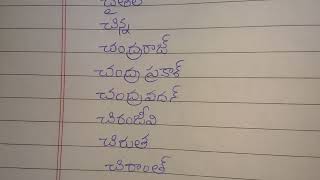 చైతల
చిన్న
చంద్రరాజ్
చంద్ర ప్రకాశ్
చంద్రవదన్
చిరంజీవి
చిరుత
చిశాంత్